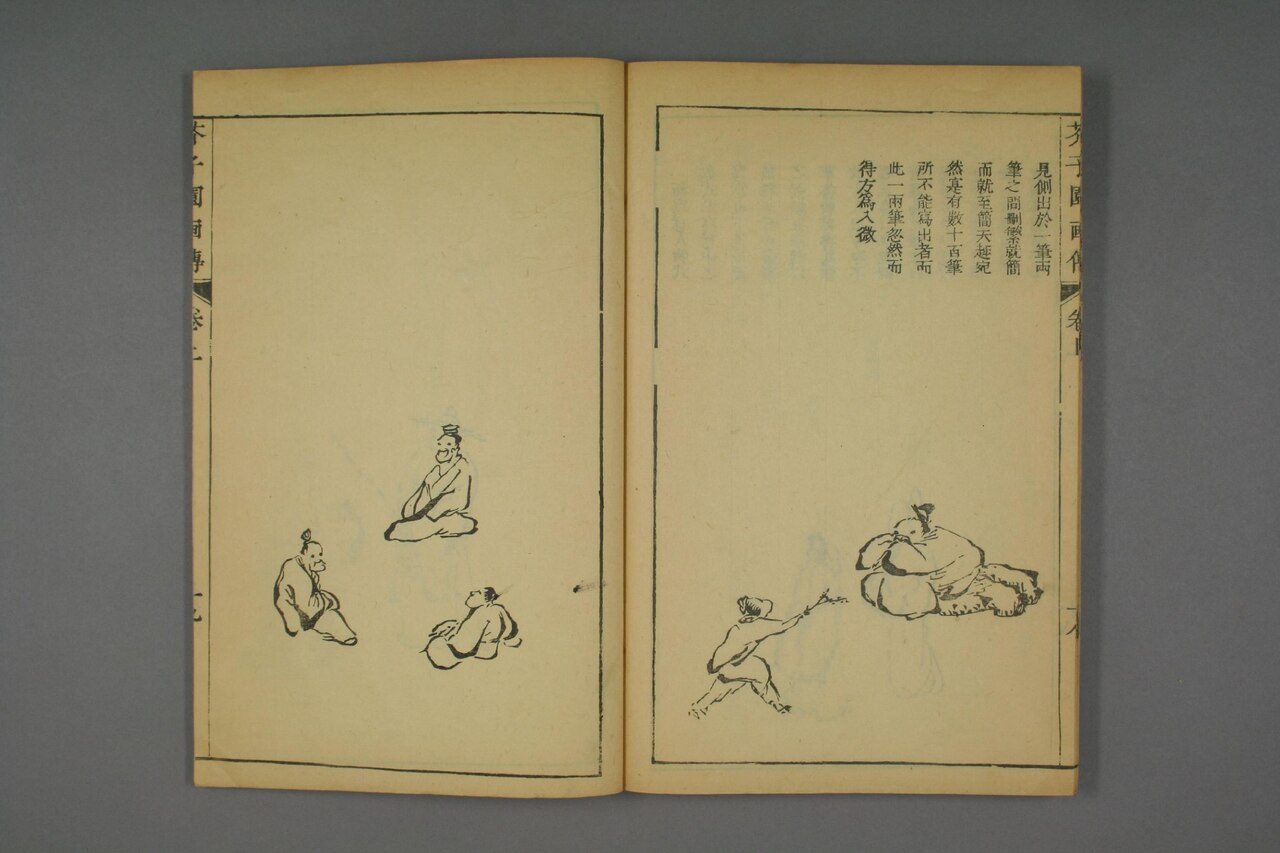 見側出於一筆兩
筆之間刪繁就簡
而就至簡天趣宛
然寔有數十百筆
所不能寫出者而
此一兩筆忽然而
得方為入微
芥子園畫傳
卷
芥子園画傳
卷